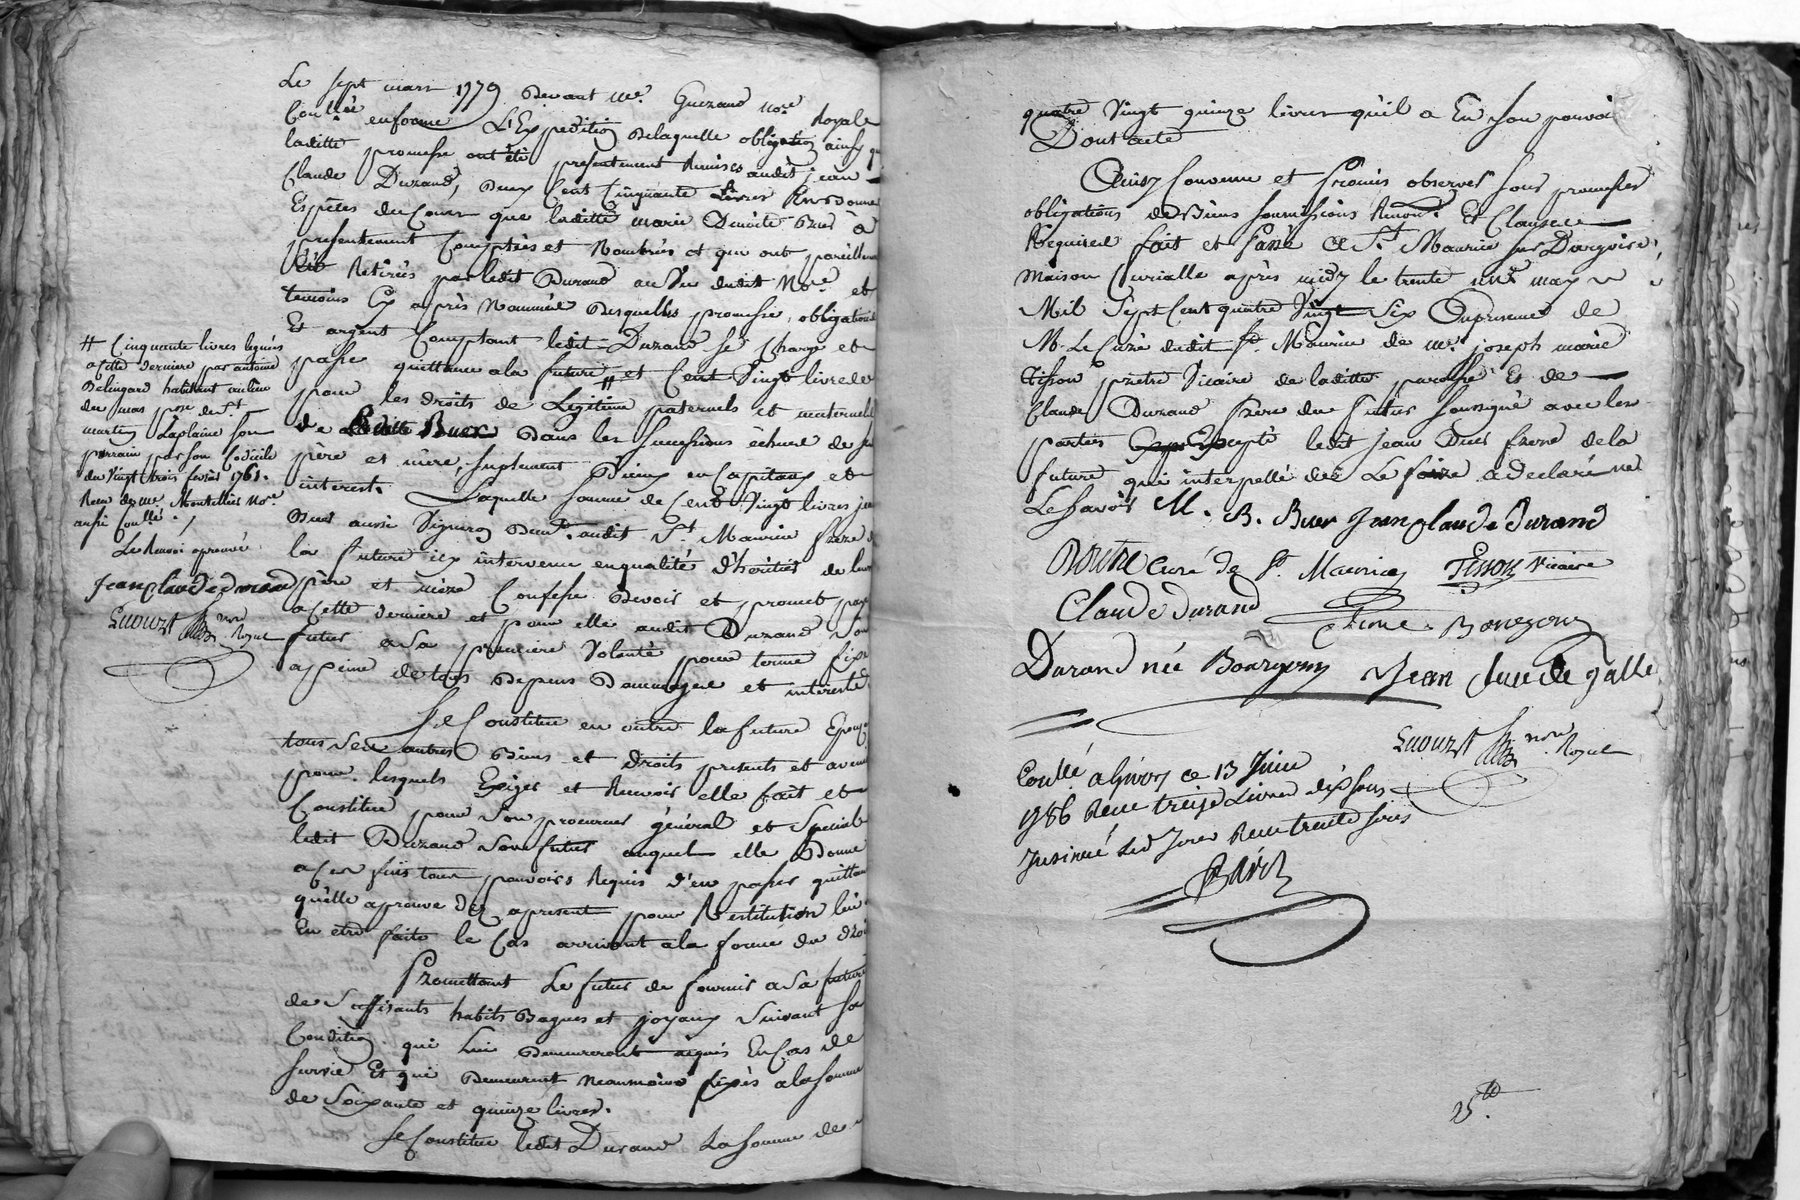 Le sept mars 1779 devant me. Guerand nore. Royale
Conllé en forme L'Expedition de laquelle obligation ainsy que
laditte promesse ont été presentement remises audit jean
Claude Durand, deux Cent Cinquante Livres En donne
Espèces du Cours que laditte marie Benoite Buer a
presentement Comptées et Nombrées et qui ont pareillement
été Retirées par ledit Durand au vu dudit Nore. et
temoins Cy après Nommés Desquelles promesse, obligation
Et argent Comptant ledit Durand se charge et
passe quittance a la future # et Cent Vingt livres de
pour les droits de Legitime paternels et maternels
de Buer dans les successions échues de ses
père et mère, suplement d'iceux en Capitaux et
interest. Laquelle somme de Cent Vingt livres jean
Buer aussi Vigneron demt. audit St. Maurice frère de
la future icy intervenu en qualité d'héritier de leurs
père et mère Confesse devoir et promet payer
a cette derniere et pour elle audit Durand son
futur a sa premiere Volonté pour terme fixe
a peine de tous depens dommages et interests
Se Constitue en outre la future Epouse
tous ses autres Biens et droits presents et avenir
pour lesquels Exiger et Recevoir elle fait et
Constitue pour son procureur général et Special
ledit Durand son futur auquel elle Donne
a ces fins tous pouvoirs Requis d'en passer quittance
qu'elle aprouve dez apresent pour Restitution lui
En etre faite le Cas arrivant a la forme du droit
Promettant Le futur de fournir a Sa future
de Suffisants habits Bagues et joyaux Suivant sa
Condition qui Lui Demeureront aquis En Cas de
survie Et qui Demeurent neanmoins fixés a la somme
de Soixante et quinze livres.
Se Constitue ledit Durand La somme de
# Cinquante livres leguées
a cette derniere par antoine
Delengard habittant au lieu
du mas psse de St.
martin Laplaine son
parrain par son Codicile
du Vingt trois fevrier 1761.
Recu de me. Montellier Nore.
aussi Conllé./
Le Renvoi aprouvé
Jean Claude durand
nore Royal
quatre Vingt quinze livres qu'il a En son pouvoir
Dont acte
Ainsy Convenu et Promis observer sous promesses
obligations de Biens soumissions Renon. Et Clauses
Requises fait et Passé a St. Maurice sur Dargoire
maison Curialle après midy le trente un may
Mil Sept Cent quatre Vingt Six En presence de
Mr. Le Curé dudit St. Maurice de me. joseph marie
Tisson prêtre Vicaire de laditte paroisse Et de
Claude Durand frere du futur soussigné avec les
parties Excepté ledit Jean Buer frere de la
future qui interpellé de Le faire a declaré ne
Le Savoir M. B. Buer Jean Claude Durand
curé de St. Maurice Tisson Vicaire
Claude durand Bourgeon
Durand née Bourgeon Jean Claude Galle
nore. Royal
Conllé a Givors ce 13 Juin
1786 Recu treize Livres dix sous
Insinué led Jour Recu trente sous
25.tt